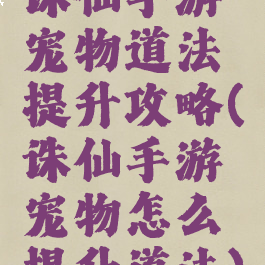 诛仙手游
宠物道法
提升攻略(
诛仙手游
宠物怎么
提升道法)